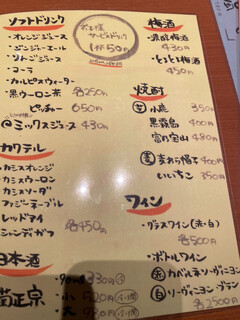 ソフトドリンク
・オレンジジュース
・ジンジャーエール
・りんごジュース
・コーラ
・カルピスウォーター
・黒ウーロン茶 各250円
ピッチャー 650円
@ミックスジュース 430円
お子様
サービスドリンク
1杯50円
カクテル
・カシスオレンジ
・カシスウーロン
・カシスソーダ
・ファジーネーブル
・レッドアイ
・シャンディガフ 各450円
日本酒
菊正宗
小
大
梅酒
430円
450円
焼酎
黒霧島 400円
富乃宝山 480円
いいちこ 350円
ワイン
・グラスワイン(赤・白)
各500円
・ボトルワイン
赤 カベルネ・ソーヴィニヨン
白 ソーヴィニヨン・ブラン
各2500円